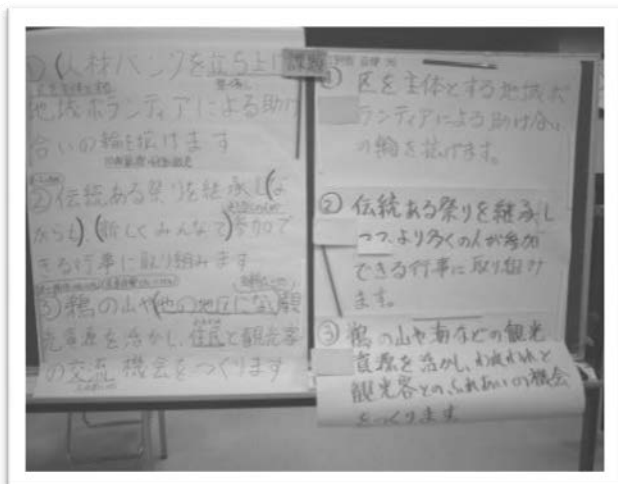 ①(人材バンクを立ち上げ
地域ボランティアによる助け
合いの輪を拡げます
②伝統ある祭りを継承し(な
がらも)、(新しくみんなで)参加で
きる行事に取り組みます
③鵜の山や(他の地区にない)観
光資源を活かし、住民と観光客
の交流機会をつくります
課題
① 区を主体とする地域ボ
ランティアによる助け合い
の輪を拡げます。
② 伝統ある祭りを継承し
つつ、より多くの人が参加
できる行事に取り組み
ます。
③ 鵜の山や海などの観光
資源を活かし、われわれと
観光客とのふれあいの機会
をつくります